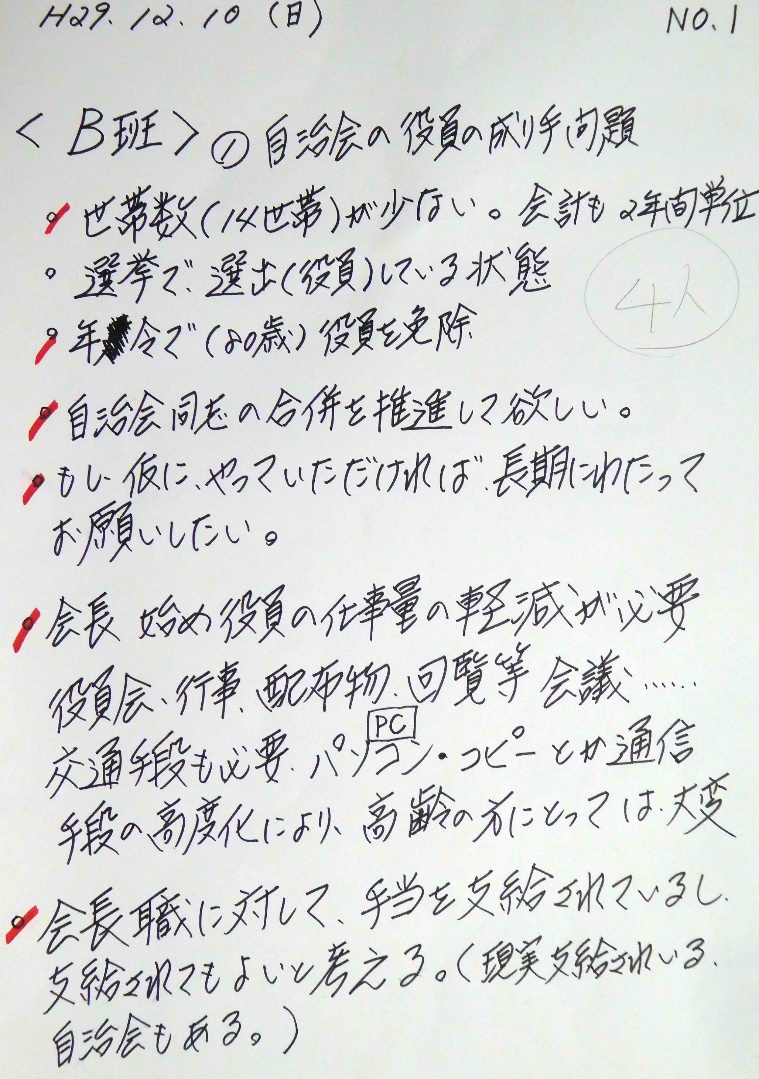 H29.12.10（日） NO.1
〈B班〉① 自治会の役員の成り手問題
○ 世帯数(14世帯)が少ない。会計も2年間単位
○ 選挙で、選出(役員)している状態
4人
○ 年令で(80歳)役員を免除
○ 自治会同志の合併を推進して欲しい。
○ もし仮に、やっていただければ、長期にわたって
お願いしたい。
○ 会長始め役員の仕事量の軽減が必要
役員会、行事、配布物、回覧等 会議……
PC
交通手段も必要、パソコン・コピーとか通信
手段の高度化により、高齢の方にとっては、大変
○ 会長職に対して、手当を支給されているし、
支給されてもよいと考える。(現実支給されいる、
自治会もある。)